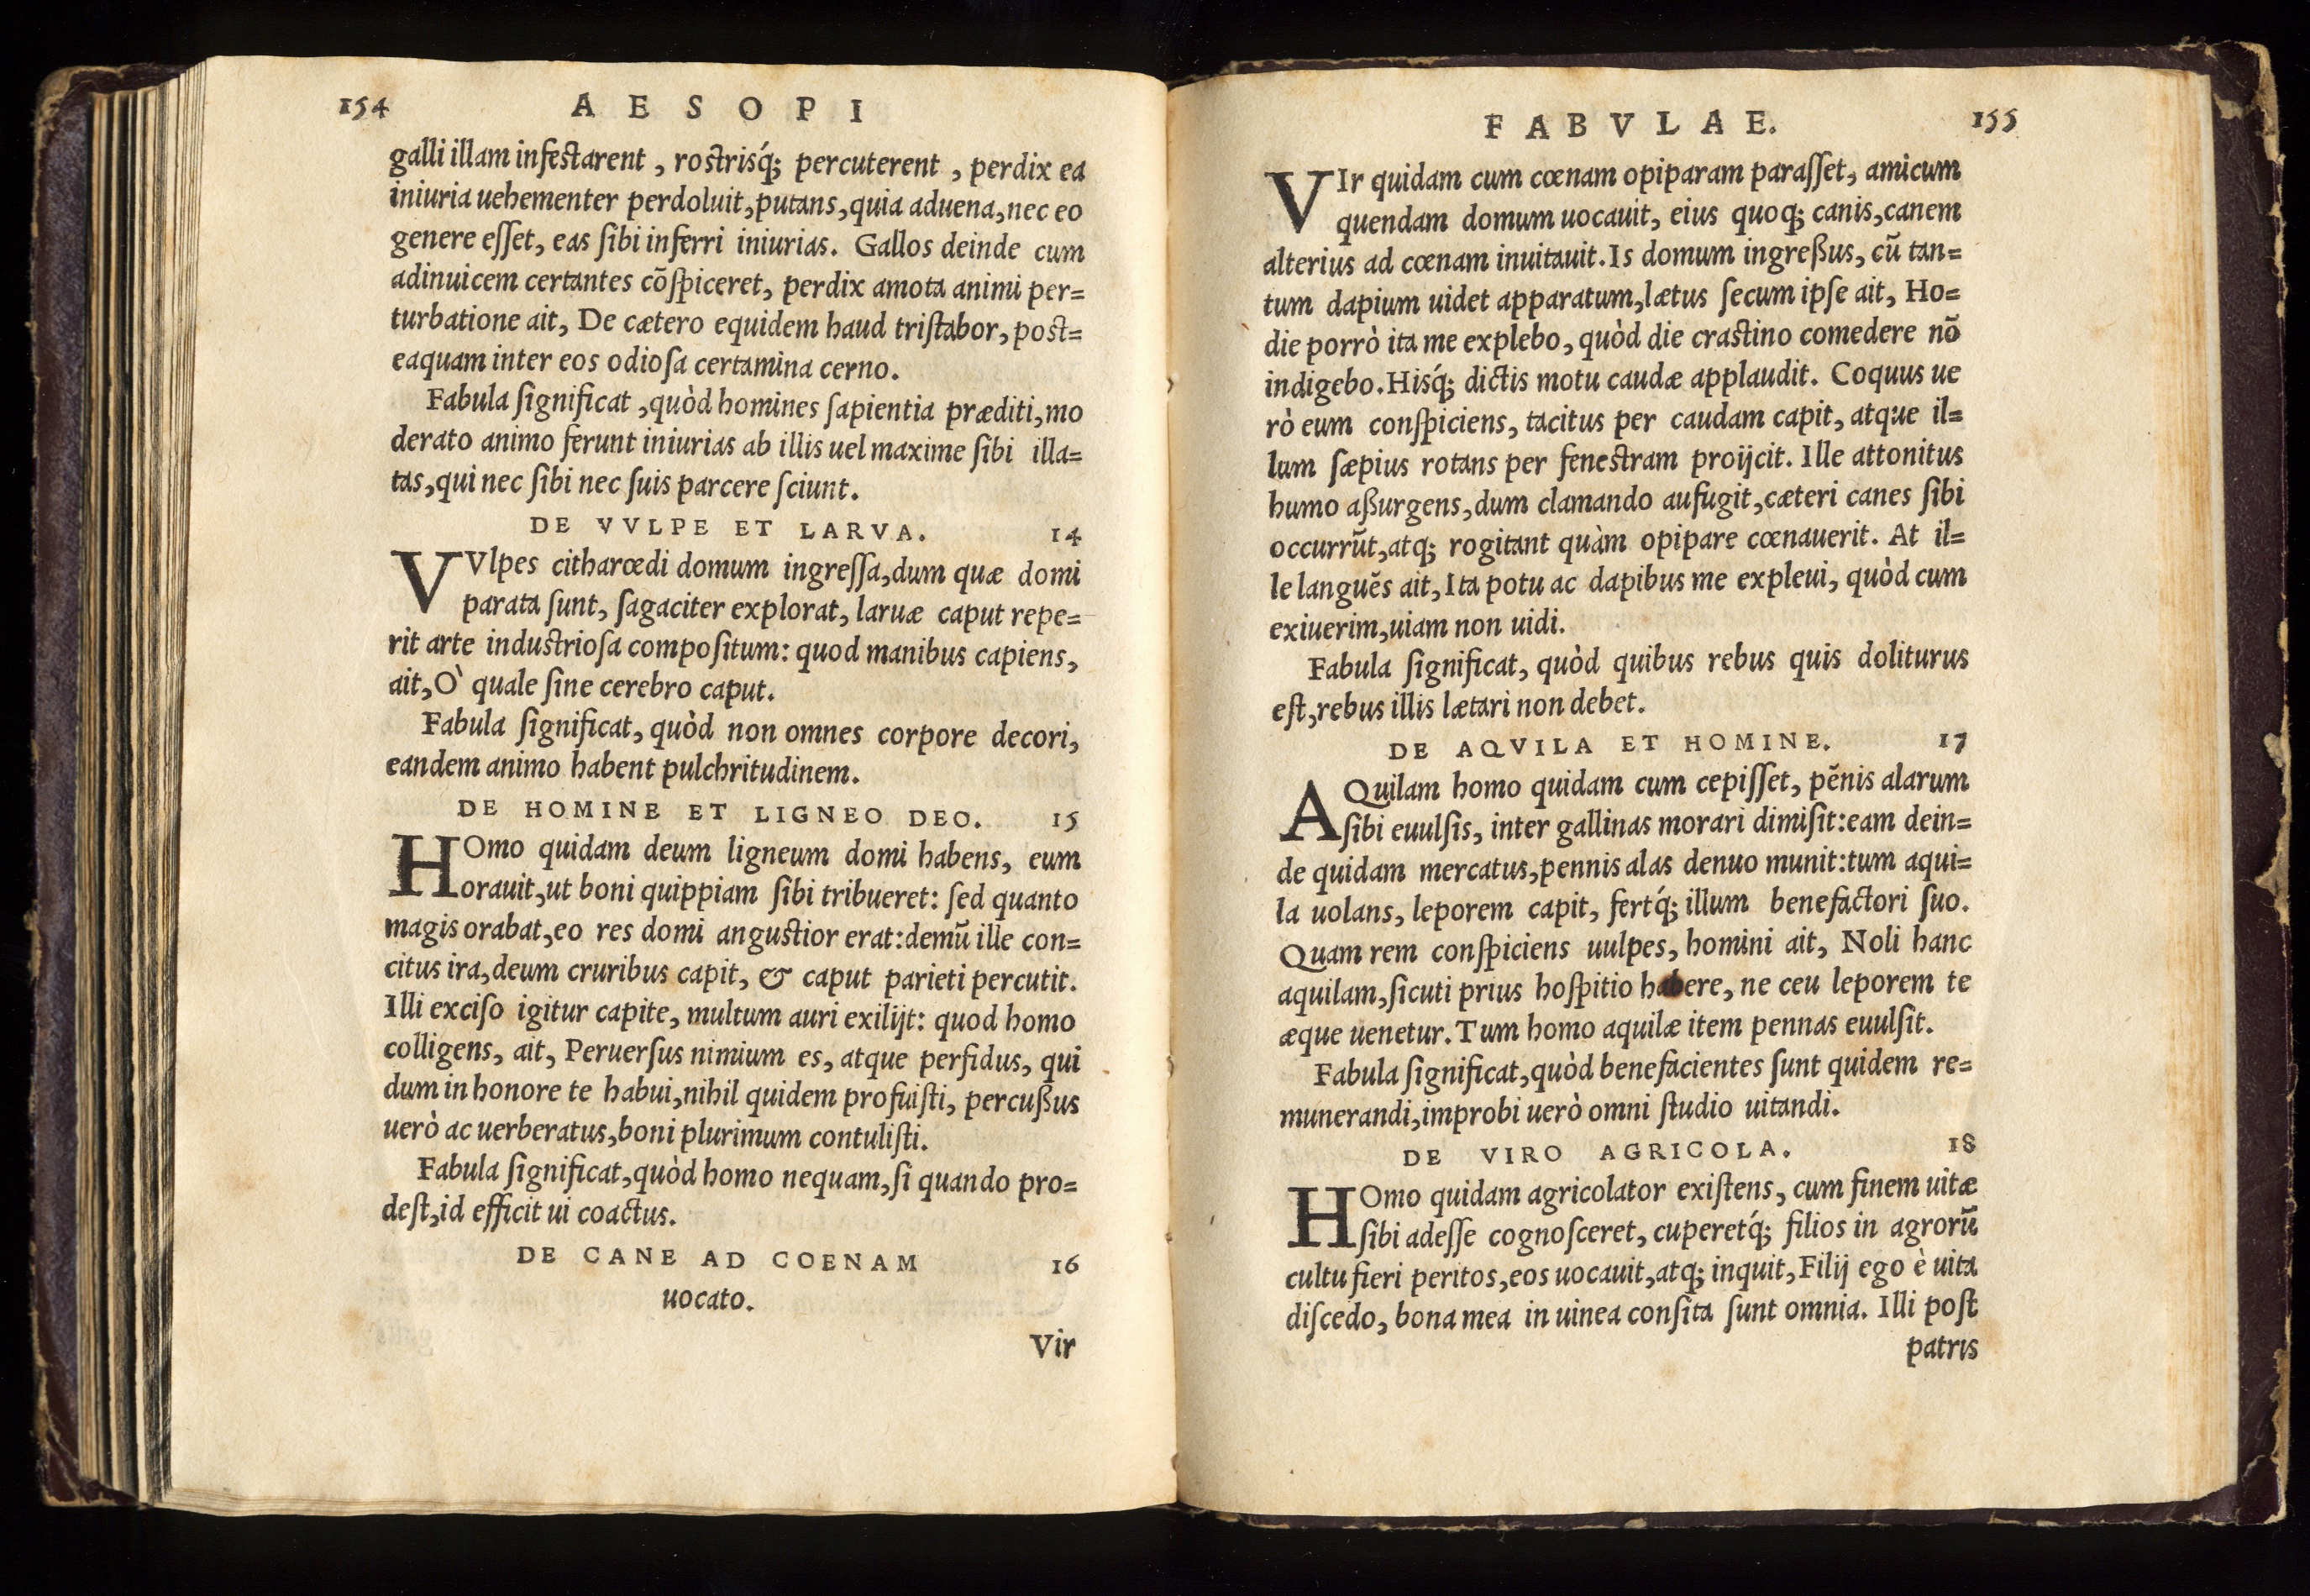 154 AESOPI
galli illam infestarent, rostrisq́; percuterent, perdix ea
iniuria uehementer perdoluit, putans, quia aduena, nec eo
genere eſſet, eas ſibi inferri iniurias. Gallos deinde cum
adinuicem certantes cõſpiceret, perdix amota animi per=
turbatione ait, De cætero equidem haud triſtabor, post=
eaquam inter eos odioſa certamina cerno.
Fabula ſignificat, quòd homines ſapientia præditi, mo
derato animo ferunt iniurias ab illis uel maxime ſibi illa=
tas, qui nec ſibi nec ſuis parcere ſciunt.
DE VVLPE ET LARVA. 14
VVlpes citharœdi domum ingreſſa, dum quæ domi
parata ſunt, ſagaciter explorat, laruæ caput repe=
rit arte industrioſa compoſitum: quod manibus capiens,
ait, O` quale ſine cerebro caput.
Fabula ſignificat, quòd non omnes corpore decori,
eandem animo habent pulchritudinem.
DE HOMINE ET LIGNEO DEO. 15
HOmo quidam deum ligneum domi habens, eum
orauit, ut boni quippiam ſibi tribueret: ſed quanto
magis orabat, eo res domi angustior erat: demũ ille con=
citus ira, deum cruribus capit, & caput parieti percutit.
Illi exciſo igitur capite, multum auri exilijt: quod homo
colligens, ait, Peruerſus nimium es, atque perfidus, qui
dum in honore te habui, nihil quidem profuiſti, percußus
uerò ac uerberatus, boni plurimum contuliſti.
Fabula ſignificat, quòd homo nequam, ſi quando pro=
deſt, id efficit ui coactus.
DE CANE AD COENAM 16
uocato.
Vir
FABVLAE. 155
VIr quidam cum cœnam opiparam paraſſet, amicum
quendam domum uocauit, eius quoq; canis, canem
alterius ad cœnam inuitauit. Is domum ingreßus, cũ tan=
tum dapium uidet apparatum, lætus ſecum ipſe ait, Ho=
die porrò ita me explebo, quòd die crastino comedere nõ
indigebo. Hisq́; dictis motu caudæ applaudit. Coquus ue
rò eum conſpiciens, tacitus per caudam capit, atque il=
lum ſæpius rotans per fenestram proijcit. Ille attonitus
humo aßurgens, dum clamando aufugit, cæteri canes ſibi
occurrũt, atq; rogitant quàm opipare cœnauerit. At il=
le languẽs ait, Ita potu ac dapibus me expleui, quòd cum
exiuerim, uiam non uidi.
Fabula ſignificat, quòd quibus rebus quis doliturus
eſt, rebus illis lætari non debet.
DE AQVILA ET HOMINE. 17
AQuilam homo quidam cum cepiſſet, pẽnis alarum
ſibi euulſis, inter gallinas morari dimiſit: eam dein=
de quidam mercatus, pennis alas denuo munit: tum aqui=
la uolans, leporem capit, fertq́; illum benefactori ſuo.
Quam rem conſpiciens uulpes, homini ait, Noli hanc
aquilam, ſicuti prius hoſpitio habere, ne ceu leporem te
æque uenetur. Tum homo aquilæ item pennas euulſit.
Fabula ſignificat, quòd benefacientes ſunt quidem re=
munerandi, improbi uerò omni ſtudio uitandi.
DE VIRO AGRICOLA. 18
HOmo quidam agricolator exiſtens, cum finem uitæ
ſibi adeſſe cognoſceret, cuperetq́; filios in agrorũ
cultu fieri peritos, eos uocauit, atq; inquit, Filij ego è uita
diſcedo, bona mea in uinea conſita ſunt omnia. Illi poſt
patris